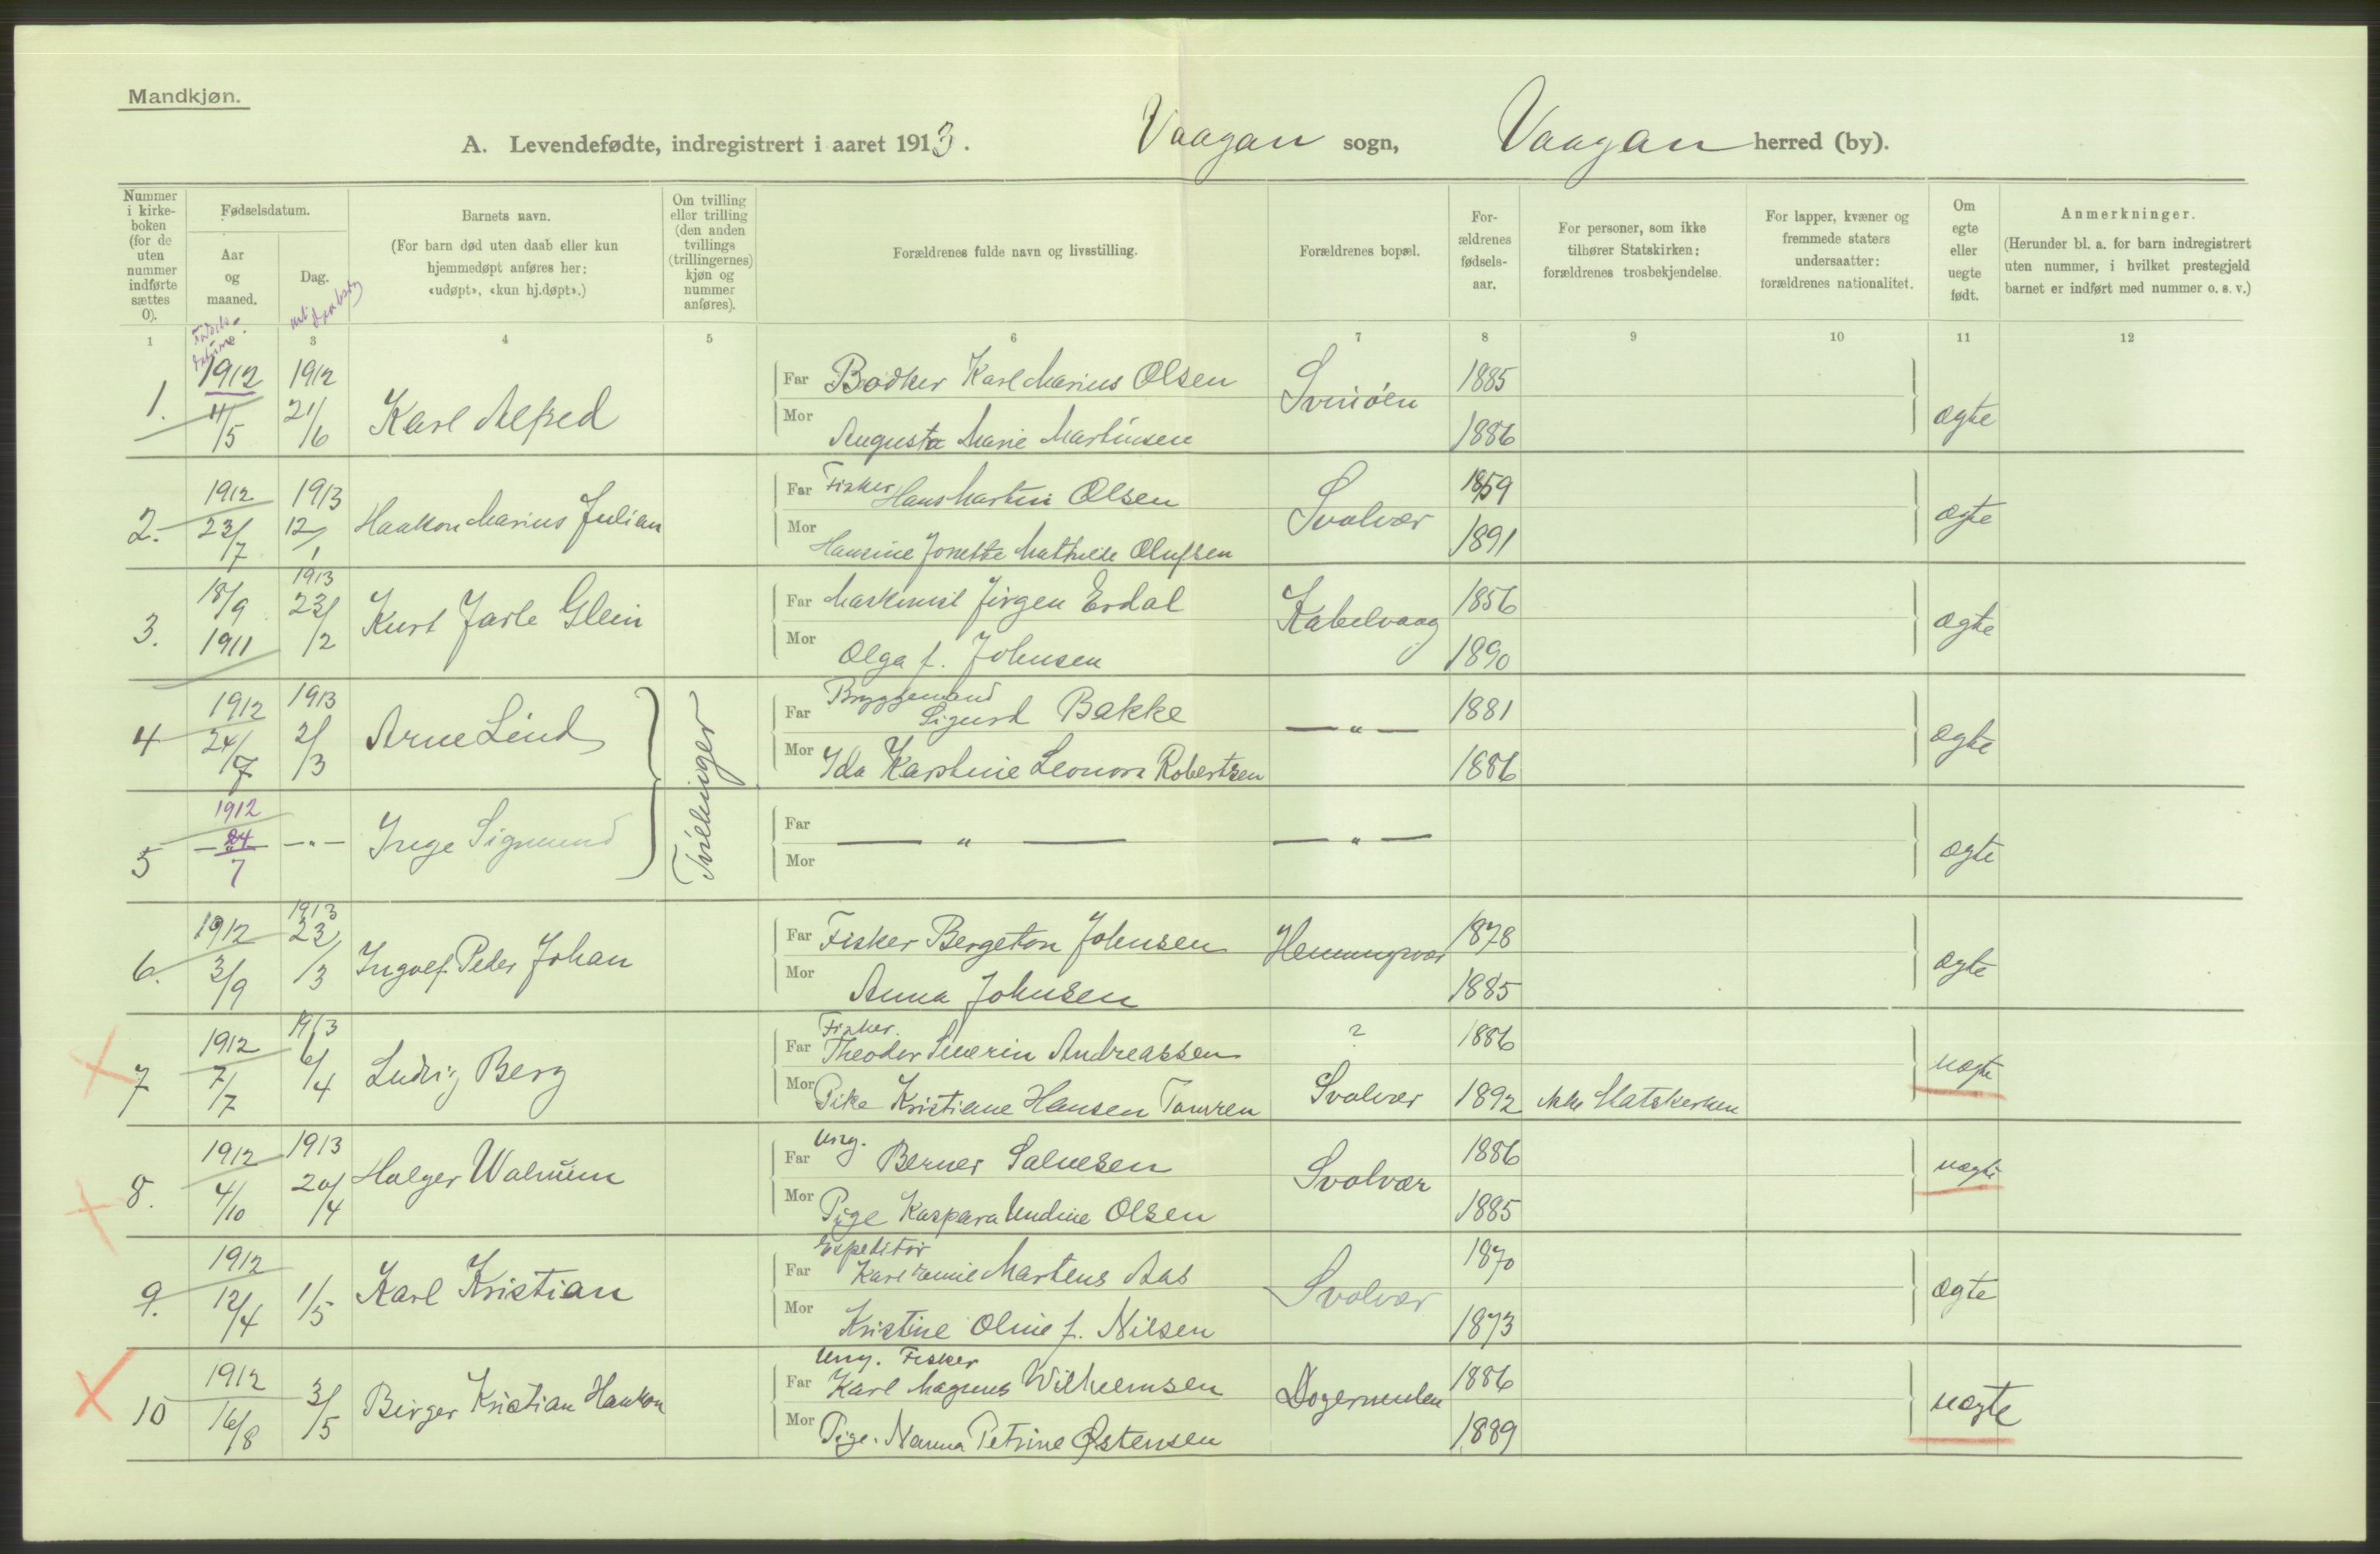 Mandkjøn.
A. Levendefødte, indregistrert i aaret 1913. Vaagan sogn, Vaagan herred (by).
Nummer i kirke-boken (for de uten nummer indførte sættes 0).
Fødselsdatum.
Aar og maaned.
Dag.
Barnets navn.
(For barn død uten daab eller kun hjemmedøpt anføres her: «udøpt», «kun hj.døpt».)
Om tvilling eller trilling (den anden tvillings (trillingernes) kjøn og nummer anføres).
Forældrenes fulde navn og livsstilling.
Forældrenes bopæl.
For-ældrenes fødsels-aar.
For personer, som ikke tilhører Statskirken: forældrenes trosbekjendelse.
For lapper, kvæner og fremmede staters undersaatter: forældrenes nationalitet.
Om egte eller uegte født.
Anmerkninger.
(Herunder bl. a. for barn indregistrert uten nummer, i hvilket prestegjeld barnet er indført med nummer o. s. v.)
1 3 4 5 6 7 8 9 10 11 12
1. 1912 11/5 1912 21/6 Karl Alfred
Far Bødker Karl Marius Olsen Svinöen 1885
Mor Augusta Marie Martinsen 1886 ægte
2. 1912 23/7 1913 12/1 Haakon Marius Julian
Far Fisker Hans Martin Olsen Svolvær 1859
Mor Hansine Jonette Mathilde Olufsen 1891 ægte
3. 18/9 1911 1913 23/2 Kurt Jarle Glein
Far Maskinist Jörgen Erdal Kabelvaag 1856
Mor Olga f. Johnsen 1890 ægte
4 1912 24/7 1913 2/3 Arne Lind Tvillinger
Far Bryggemand Sigurd Bakke — " — 1881
Mor Ida Karoline Leonora Robertsen 1886 ægte
5 1912 24/7 — " — Inge Sigmund
Far — " — — " —
Mor ægte
6. 1912 3/9 1913 23/3 Ingolf Peder Johan
Far Fisker Bergeton Johnsen Henningsvær 1878
Mor Anna Johnsen 1885 ægte
7 1912 7/7 1913 6/4 Ludvig Berg
Far Fisker. Theodor Severin Andreassen ? 1886
Mor Pike Kristiane Hansen Svolvær 1892 ikke Statskirken uægte
8. 1912 4/10 1913 20/4 Holger Walnum
Far Ung. Berner Salvesen Svolvær 1886
Mor Pige Kaspara Undine Olsen 1885 uægte
9. 1912 12/4 1/5 Karl Kristian
Far Expeditør Karl Emil Martens Aas Svolvær 1870
Mor Kristine Oline f. Nilsen 1873 ægte
10 1912 16/8 3/5 Birger Kristian Haakon
Far Ung. Fisker Karl Magnus Wilhelmsen 1886
Mor Pige. Nanna Petrine Østensen 1889 uægte